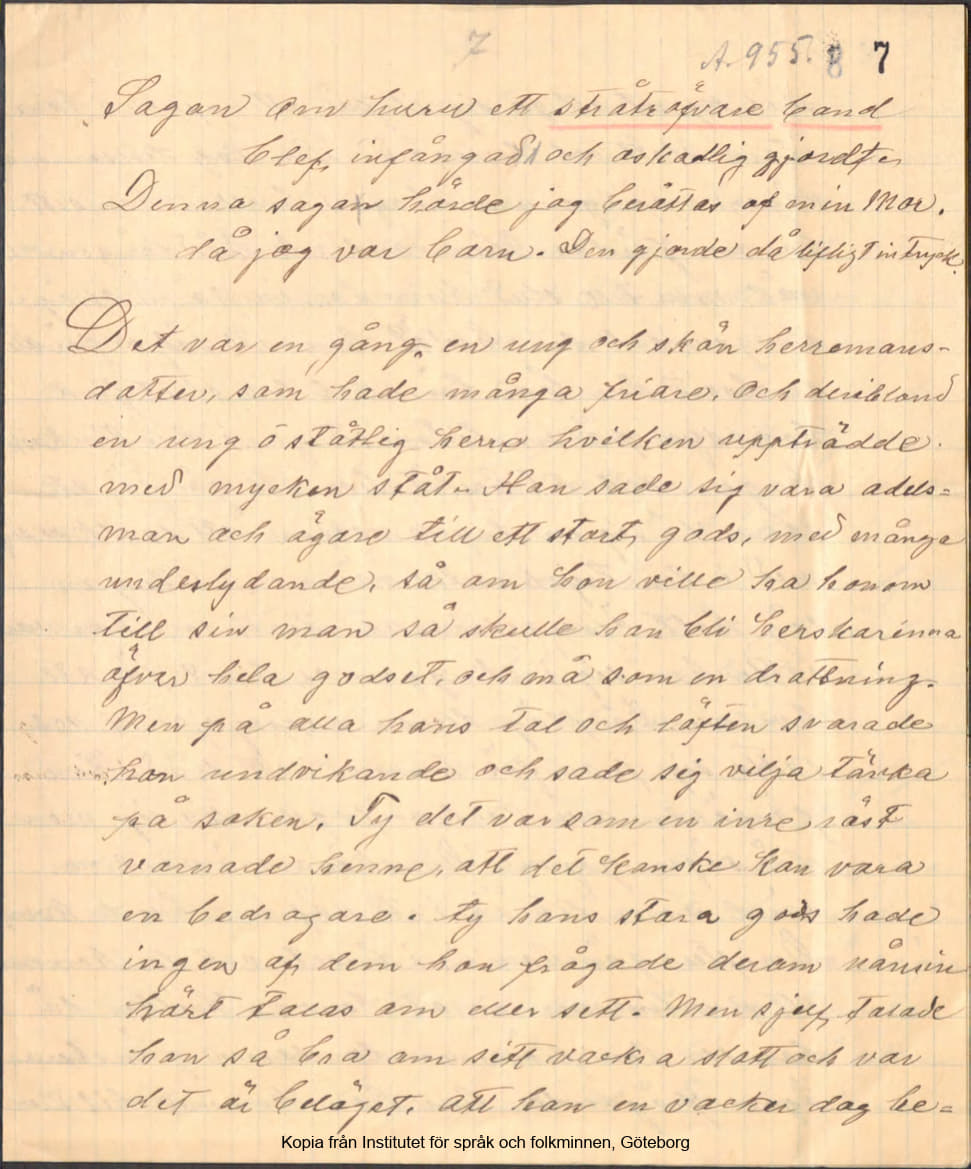 7
A. 955. 8 7
Sagan om huru ett stråtröfvare band
blef infångadt och oskadlig gjordt.
Denna sagan hörde jag berättas af min Mor.
då jag var barn. Den gjorde då lifligt intryck.
Det var en gång en ung och skön herremans-
datter, som hade många friare. Och deribland
en ung ö ståttlig herre hvilken uppträdde
med mycken ståt. Han sade sig vara adels=
man och ägare till ett stort gods, med många
underlydande, så om hon ville ha honom
till sin man så skulle hon bli herskarinna
öfver hela godset, och må som en drottning.
Men på alla hans tal och löften svarade
hon undvikande och sade sig vilja tänka
på saken. Ty det var som en inre röst
varnade henne, att det kanske kan vara
en bedragare. ty hans stora gods hade
ingen af dem hon frågade derom nånsin
hört talas om eller sett. Men sjelf talade
han så bra om sitt vackra slott och var
det är beläget, att hon en vacker dag be=
Kopia från Institutet för språk och folkminnen, Göteborg